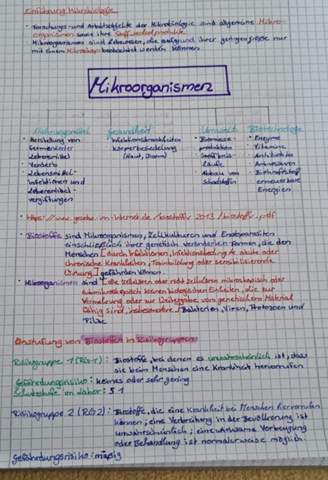 Einführung Mikrobiologie
• Forschungs- und Arbeitsobjekte der Mikrobiologie sind allgemeine Mikro-
organismen sowie ihre Stoffwechselprodukte.
Mikroorganismen sind Lebewesen, die aufgrund ihrer geringen Größe nur
mit einem Mikroskop beobachtet werden können.
Mikroorganismen
Nahrungsmittel Gesundheit Umwelt Biotechnologie
• Herstellung von
fermentierter
Lebensmittel
• Verderb
Lebensmittel-
infektionen und
Lebensmittel-
vergiftungen
• Infektionskrankheiten
• Körperbesiedelung
(Haut, Darm)
• Biomasse-
produktion
• Kreisläufe
• Abbau von
Schadstoffen
• Enzyme
• Vitamine
• Antibiotika
• Aminosäuren
• Biotreibstoff
erneuerbare
Energien
• https://www.gesetze-im-internet.de/biostoffv_2013/biostoffv.pdf
• Biostoffe sind Mikroorganismen, Zellkulturen und Endoparasiten
einschließlich ihrer genetisch veränderten Formen, die den
Menschen [durch Infektionen, akute oder
chronische Krankheiten, Toxinbildung oder sensibilisierende
Wirkung] gefährden können.
• Mikroorganismen sind [alle zellulären oder nicht zellulären mikroskopisch oder
submikroskopisch kleinen biologischen Einheiten, die zur
Vermehrung oder zur Weitergabe von genetischem Material
fähig sind, insbesondere] Bakterien, Viren, Protozoen und
Pilze
Einstufung von Biostoffen in Risikogruppen
Risikogruppe 1 (RG 1): Biostoffe, bei denen es unwahrscheinlich ist, dass
sie beim Menschen eine Krankheit hervorrufen
Gefährdungsrisiko: keines oder sehr gering
Schutzstufe im Labor: S1
Risikogruppe 2 (RG 2): Biostoffe, die eine Krankheit bei Menschen hervorrufen
können; eine Verbreitung in der Bevölkerung ist
unwahrscheinlich; eine wirksame Vorbeugung
oder Behandlung ist normalerweise möglich.
Gefährdungsrisiko: mäßig